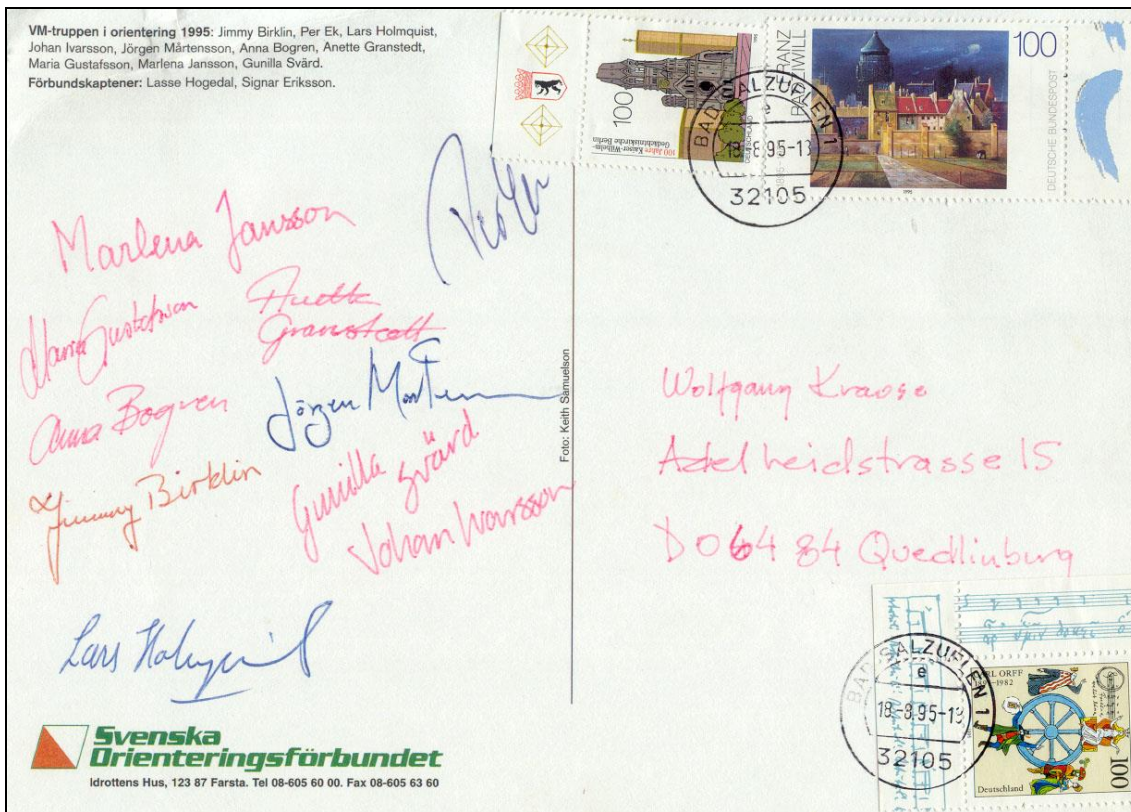 VM-truppen i orientering 1995: Jimmy Birklin, Per Ek, Lars Holmquist,
Johan Ivarsson, Jörgen Mårtensson, Anna Bogren, Anette Granstedt,
Maria Gustafsson, Marlena Jansson, Gunilla Svärd.
Förbundskaptener: Lasse Hogedal, Signar Eriksson.
100
100 Jahre Kaiser-Wilhelm-
Gedächtniskirche Berlin
DEUTSCHLAND
FRANZ
RADZIWILL
100
DEUTSCHE BUNDESPOST
BAD SALZUFLEN 1
e
18.-8.95-13
32105
Per Ek
Marlena Jansson
Maria Gustafsson
Anette
Granstedt
Anna Bogren
Jörgen Mårtensson
Jimmy Birklin
Gunilla
Svärd
Johan Ivarsson
Lars Holmquist
Foto: Keith Samuelson
Wolfgang Krause
Adelheidstrasse 15
D 06484 Quedlinburg
CARL ORFF
1895-1982
Deutschland
100
BAD SALZUFLEN 1
e
18.-8.95-13
32105
Svenska
Orienteringsförbundet
Idrottens Hus, 123 87 Farsta. Tel 08-605 60 00. Fax 08-605 63 60